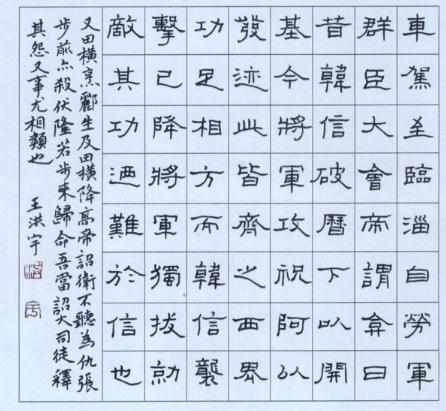 車駕至臨淄自勞軍
群臣大會帝謂弇曰
昔韓信破曆下以開
基今將軍攻祝阿以
發迹此皆齊之西界
功足相方而韓信襲
擊已降將軍獨拔勍
敵其功迺難於信也
又田橫烹酈生及田橫降高帝詔衛不聽為仇張
步前亦殺伏隆若步來歸命吾當詔大司徒釋
其怨又事尤相類也 王洪宇